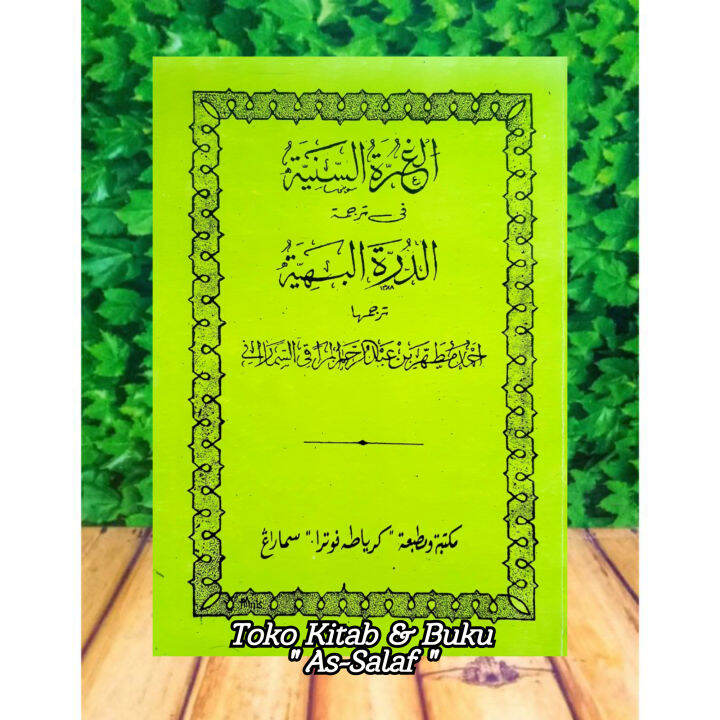 الغُرَّةُ السَّنِيَّة
فى ترجمة
الدُرَّةِ البَهِيَّة
ترجمها
احمد مطهر بن عبد الرحمن المراقى السماراني
مكتبة ومطبعة "كرياطه فوترا" سماراغ
Toko Kitab & Buku
" As-Salaf "